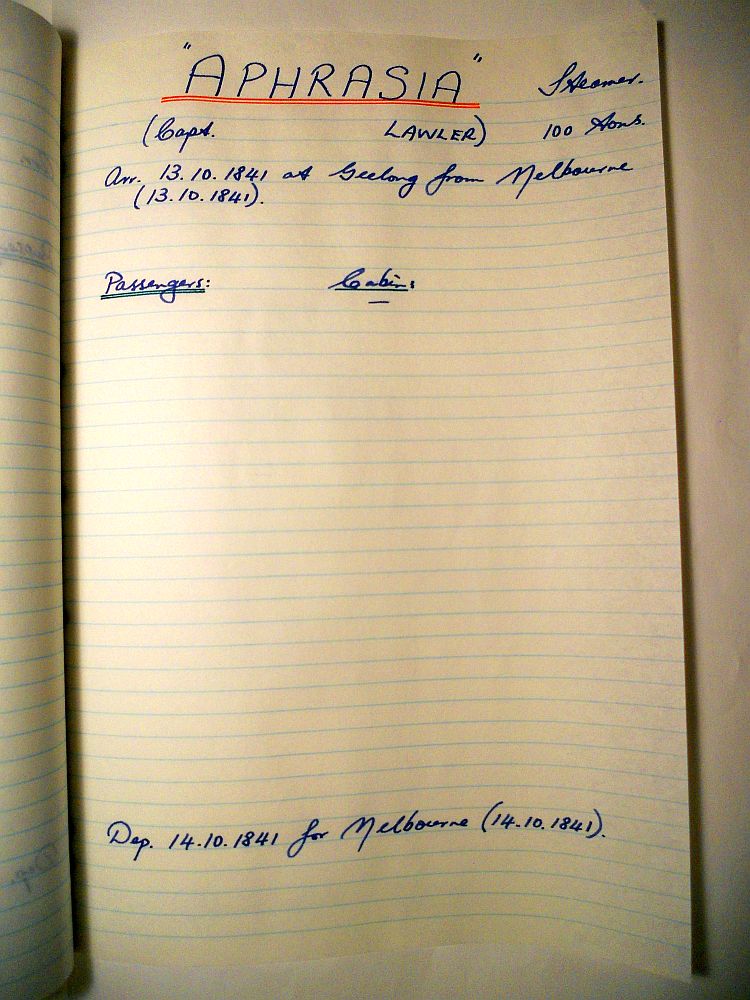 "APHRASIA" Steamer.
(Capt. LAWLER) 100 tons.
Arr. 13.10.1841 at Geelong from Melbourne
(13.10.1841).
Passengers: Cabin:
—
Dep. 14.10.1841 for Melbourne (14.10.1841).